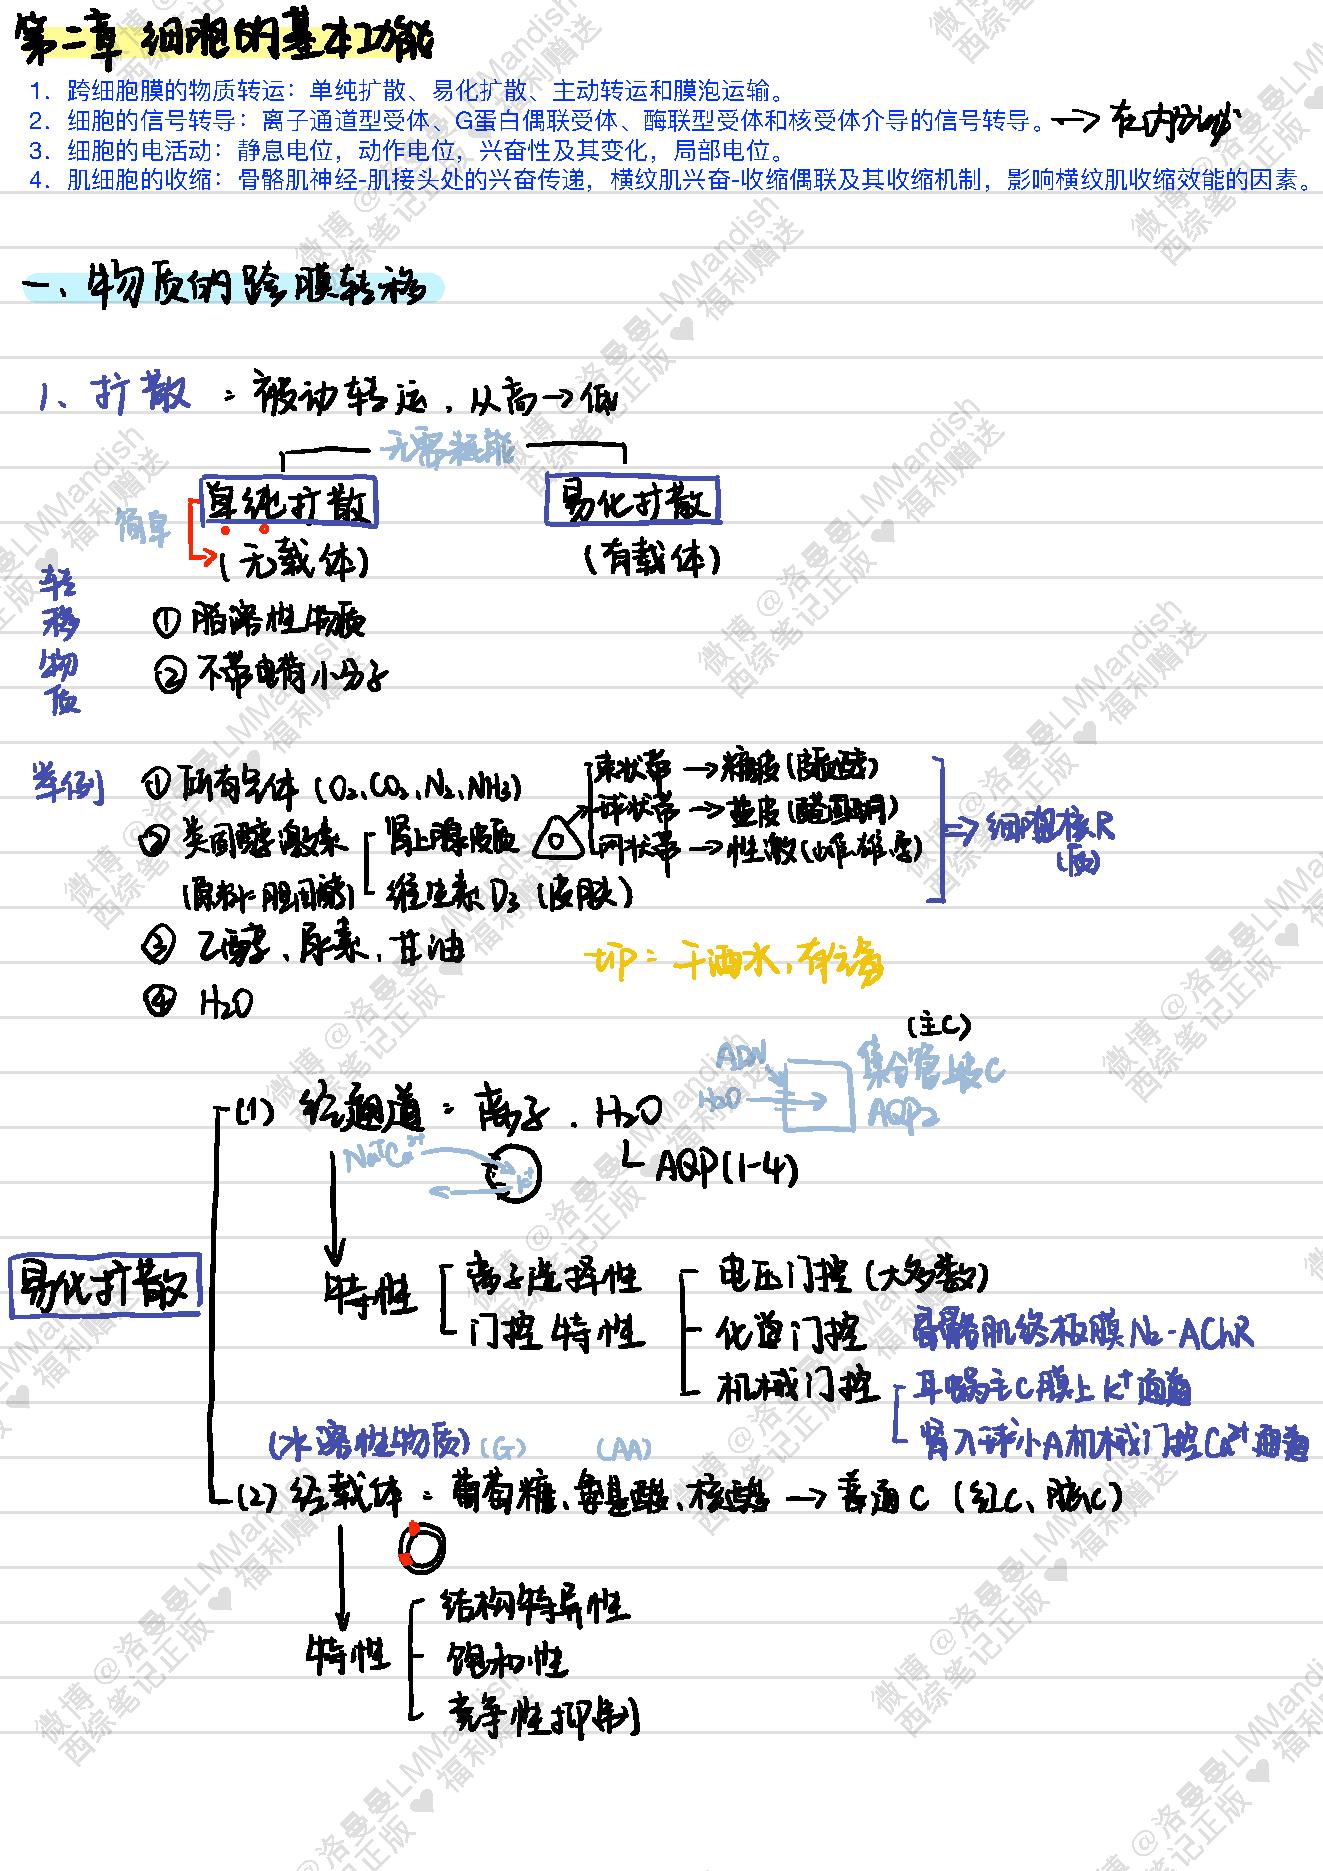 第二章 细胞的基本功能
1. 跨细胞膜的物质转运：单纯扩散、易化扩散、主动转运和膜泡运输。
2. 细胞的信号转导：离子通道型受体、G蛋白偶联受体、酶联型受体和核受体介导的信号转导。→ 在内分泌
3. 细胞的电活动：静息电位，动作电位，兴奋性及其变化，局部电位。
4. 肌细胞的收缩：骨骼肌神经-肌接头处的兴奋传递，横纹肌兴奋-收缩偶联及其收缩机制，影响横纹肌收缩效能的因素。
一、物质的跨膜转移
1、扩散：被动转运，从高→低
无需耗能
单纯扩散 易化扩散
简单
(无载体) (有载体)
转移物质
① 脂溶性物质
② 不带电荷小分子
举例
① 所有气体 (O₂、CO₂、N₂、NH₃)
② 类固醇激素 肾上腺皮质
(原料:胆固醇) 维生素D₃ (皮肤)
束状带→糖皮(皮质醇)
球状带→盐皮(醛固酮)
网状带→性激(雌雄孕)
⇒细胞核R
(质)
③ 乙醇、尿素、甘油
切P：干酒水，有六畜
④ H₂O
(主C)
ADH 集合管上皮C
H₂O AQP2
(1) 经通道：离子、H₂O
Na⁺Ca²⁺ K⁺
AQP(1-4)
易化扩散
特性 离子选择性 电压门控 (大多数)
门控特性 化学门控 骨骼肌终板膜N₂-AChR
机械门控 耳蜗毛C膜上K⁺通道
肾入球小A机械门控Ca²⁺通道
(水溶性物质) (G) (AA)
(2) 经载体：葡萄糖、氨基酸、核酸→普通C (红C、脑C)
特性 结构特异性
饱和性
竞争性抑制
微博@洛曼曼LMMandish
西综笔记正版♥福利赠送